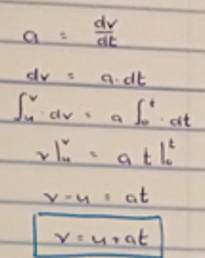 a = dv/dt
dv = a·dt
∫ᵤᵛ·dv = a ∫₀ᵗ·dt
v|ᵤᵛ = a t|₀ᵗ
v-u = at
v = u+at